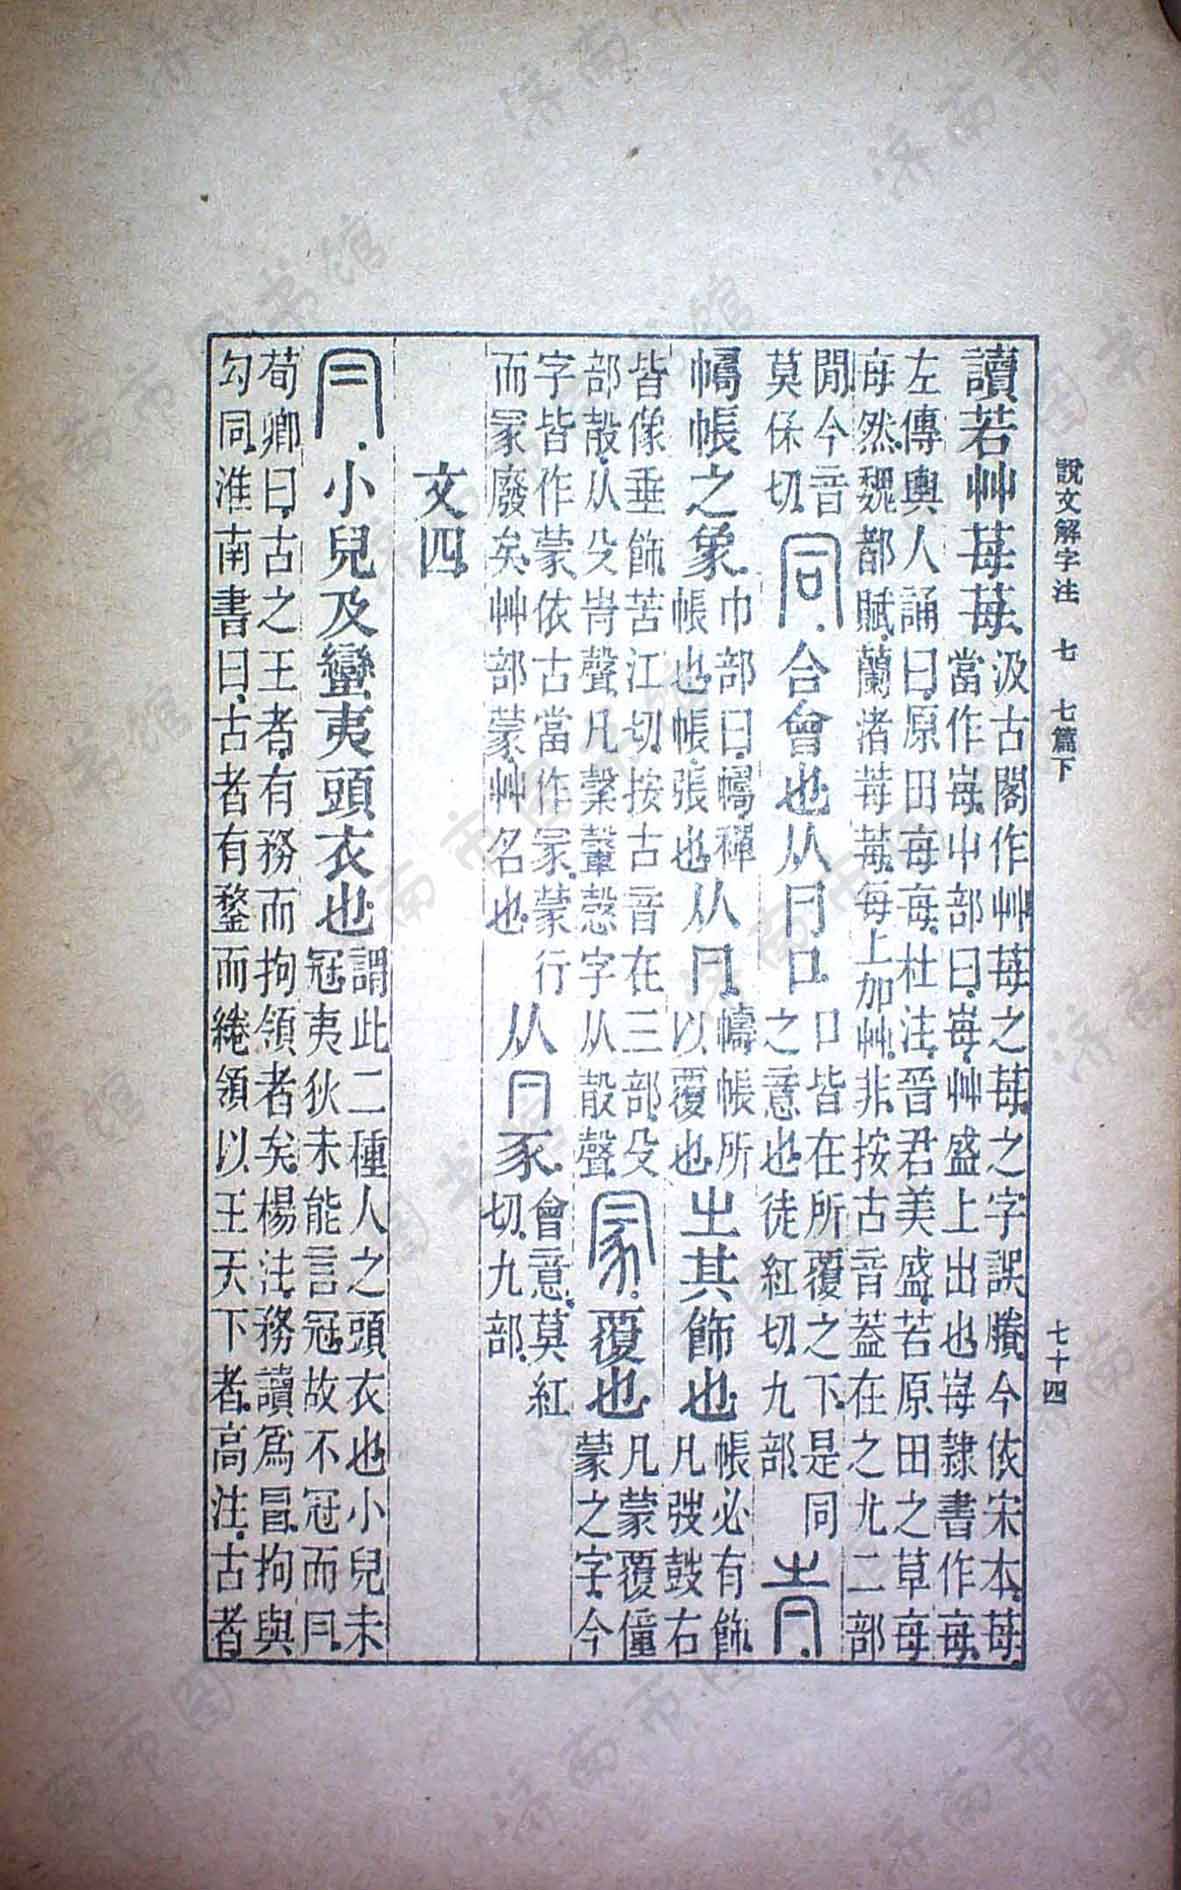 讀若艸莓莓.汲古閣作艸莓之莓.之字誤賸.今依宋本.莓當作每.屮部曰.每.艸盛上出也每隸書作每.
左傳輿人誦曰.原田每每.杜注.晉君美盛.若原田之草每每然.魏都賦.蘭渚莓莓.每上加艸.非.按古音蓋在之尤二部
閒.今音莫保切.同.合會也从冃口.口皆在所覆之下.是同之意也.徒紅切.九部.𡉉.
幬帳之象.巾部曰.幬襌帳也.帳.張也.从冃.幬帳所以覆也.㞢其飾也.帳必有飾.凡弢鼓右
皆像垂飾.苦江切.按古音在三部.殳部㱿.从殳𡉉聲.凡榖轂愨字从㱿聲.冡.覆也.凡蒙覆僮蒙之字.今
字皆作蒙.依古當作冡.蒙行而冡廢矣.艸部蒙.艸名也.从冃豕.會意.莫紅切.九部.
文四
冃.小兒及蠻夷頭衣也.謂此二種人之頭衣也小兒未冠夷狄未能言冠故不冠而冃.
荀卿曰.古之王者.有務而拘領者矣.楊注.務讀爲冒.拘與勾同.淮南書曰.古者有鍪而綣領以王天下者.高注.古者.
說文解字注 七 七篇下
七十四